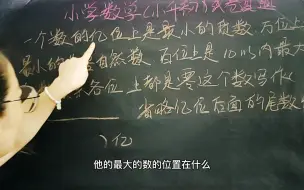 小学数学(小升初)
一个数的亿位上是最小的质数 万位上
最小的 自然数 百位上是10以内最大
各位上都是零这个数写作
省略亿位后面的尾数
)亿
他的最大的数的位置在什么